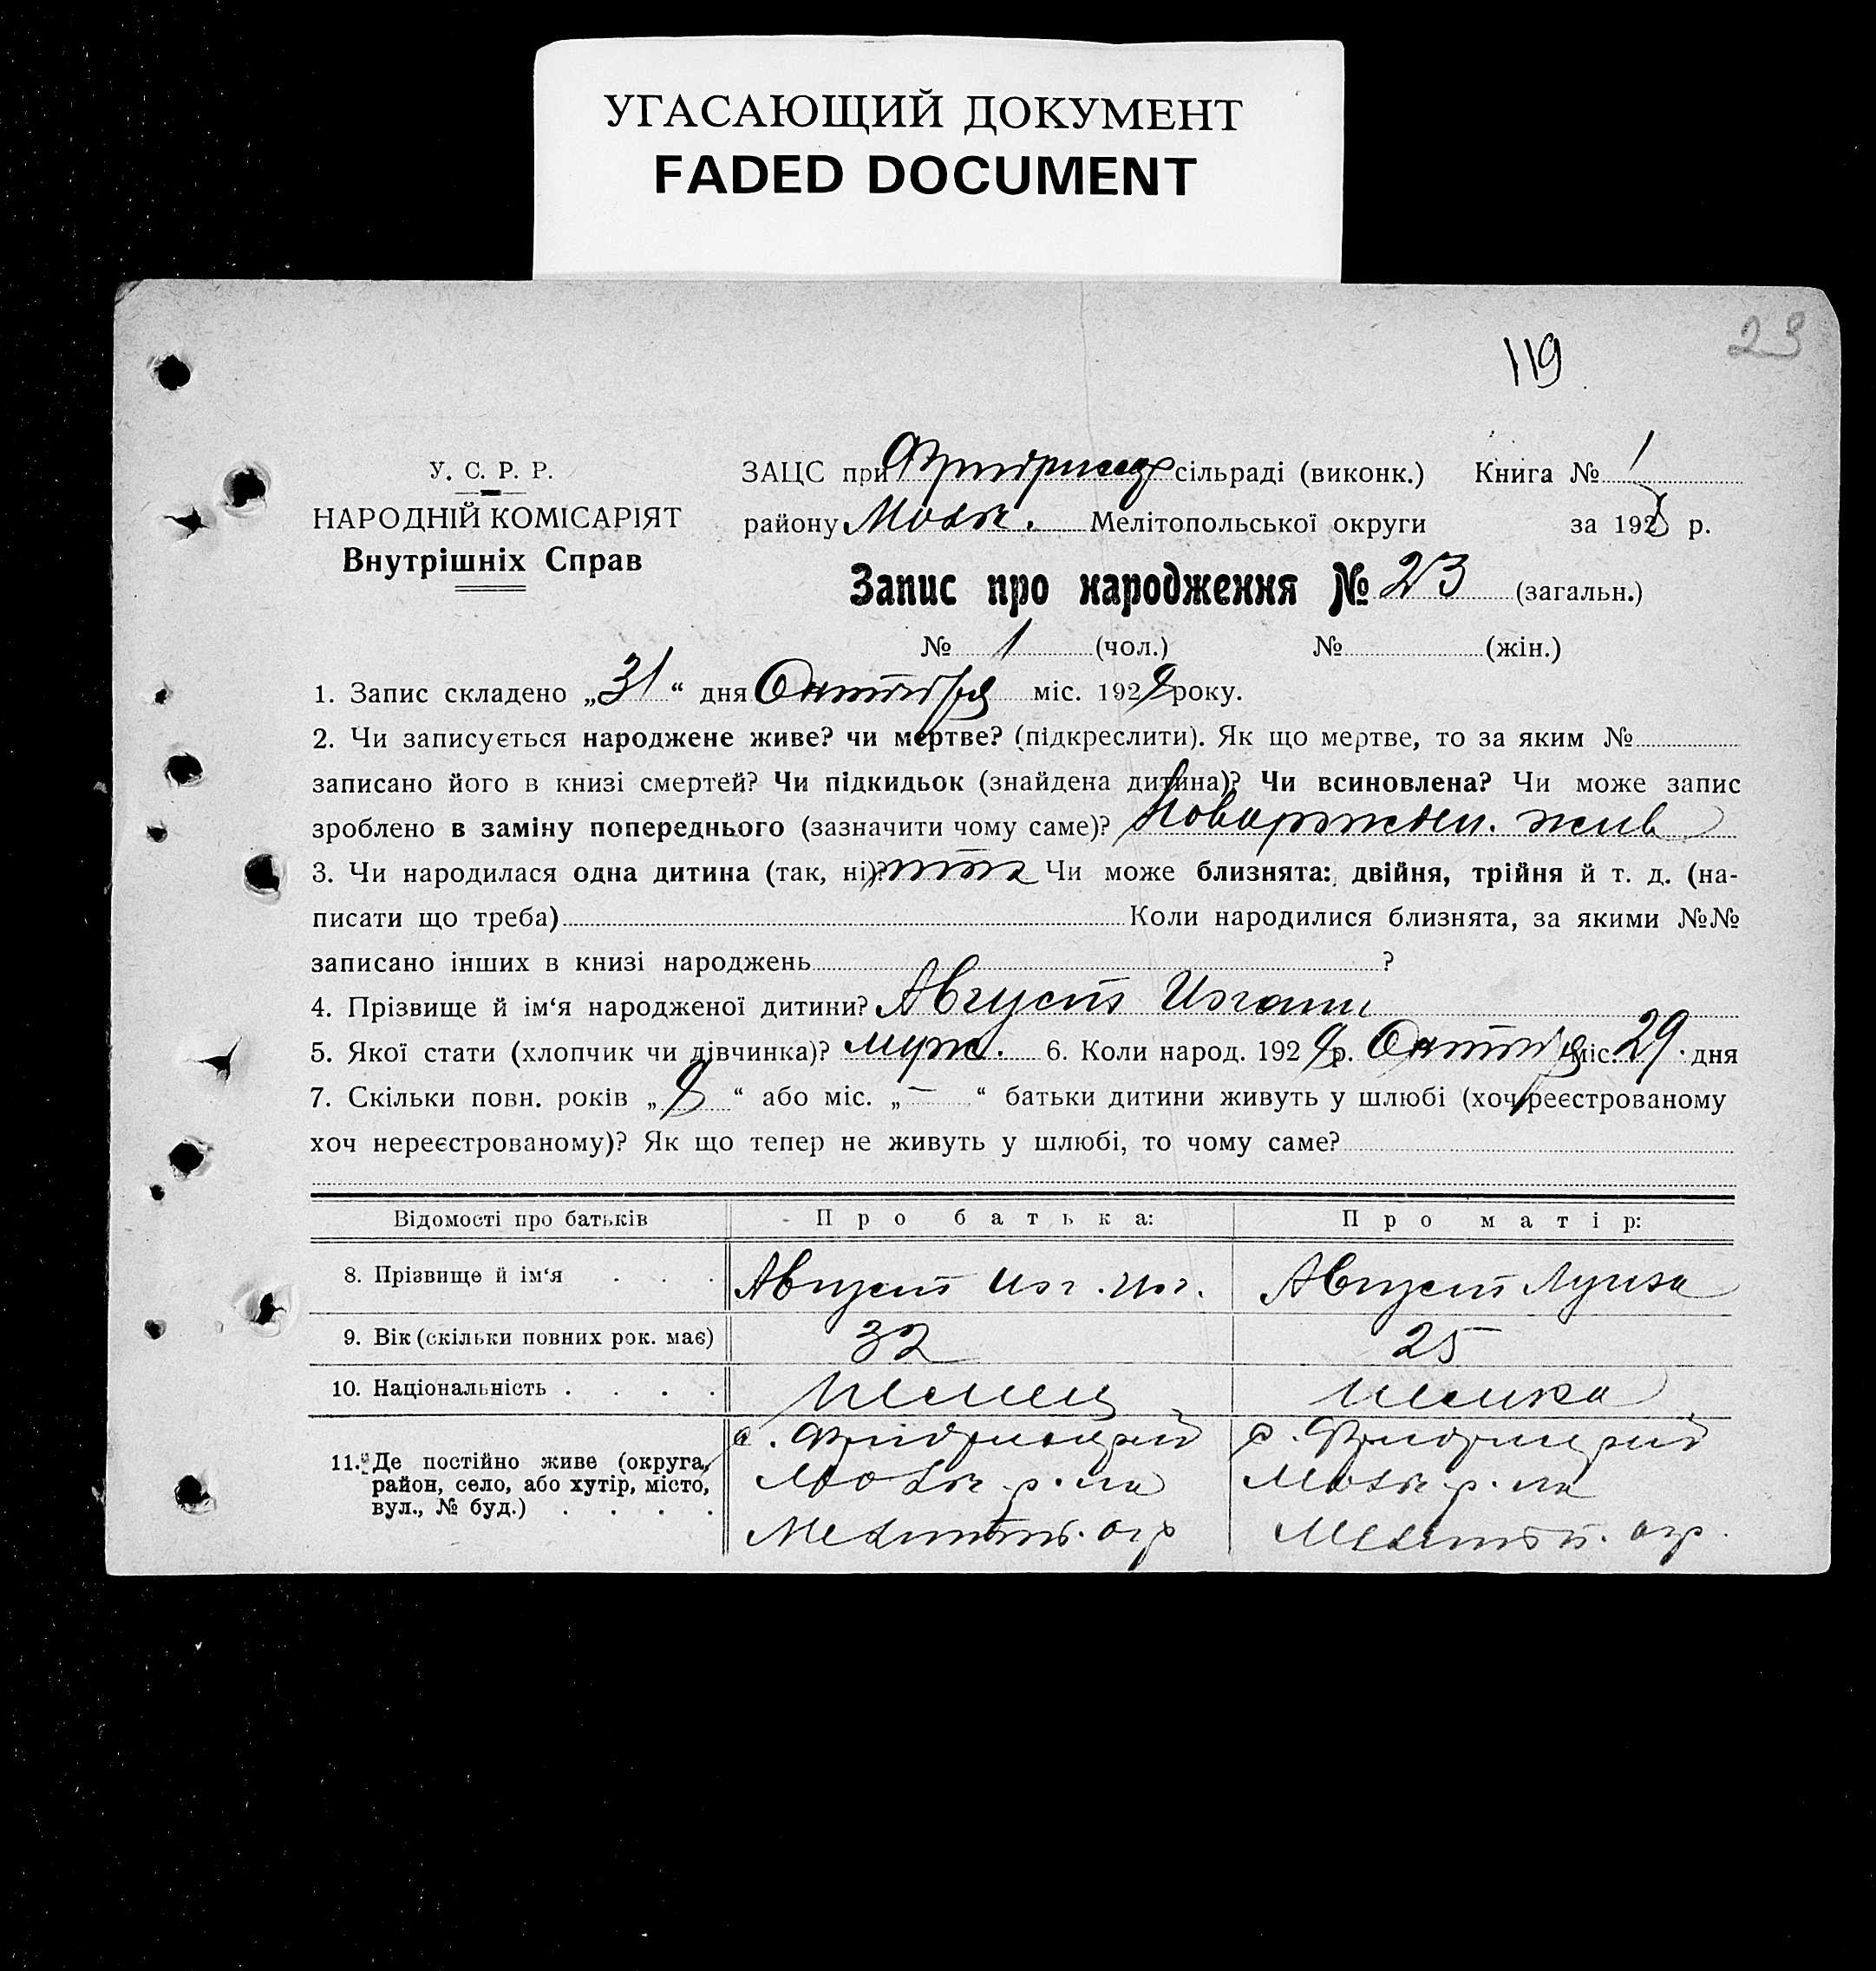 УГАСАЮЩИЙ ДОКУМЕНТ
FADED DOCUMENT
119
23
У. С. Р. Р.
НАРОДНІЙ КОМІСАРІЯТ
Внутрішніх Справ
ЗАЦС при сільраді (виконк.) Книга № 1
району Молоч. Мелітопольської округи за 1928 р.
Запис про народження № 23 (загальн.)
№ 1 (чол.) № (жін.)
1. Запис складено „31“ дня Октября міс. 1928 року.
2. Чи записується народжене живе? чи мертве? (підкреслити). Як що мертве, то за яким №
записано його в книзі смертей? Чи підкидьок (знайдена дитина)? Чи всиновлена? Чи може запис
зроблено в заміну попереднього (зазначити чому саме)? Новорожден. жив
3. Чи народилася одна дитина (так, ні)? Чи може близнята: двійня, трійня й т. д. (на-
писати що треба) Коли народилися близнята, за якими №№
записано інших в книзі народжень ?
4. Прізвище й ім‘я народженої дитини? Август Иоган
5. Якої стати (хлопчик чи дівчинка)? муж. 6. Коли народ. 1928 р. Октября міс. 29. дня
7. Скільки повн. років „8“ або міс. „—“ батьки дитини живуть у шлюбі (хоч реєстрованому
хоч нереєстрованому)? Як що тепер не живуть у шлюбі, то чому саме?
Відомості про батьків Про батька: Про матір:
8. Прізвище й ім‘я . . . Август Иог. Иог. Август Луиза
9. Вік (скільки повних рок. має) 32 25
10. Національність . . . . Немец Немка
11. Де постійно живе (округа, район, село, або хутір, місто, вул., № буд.) . . . .
с.
Молоч. р-на
Мелитоп. окр
с.
Молоч р-на
Мелитоп. окр.